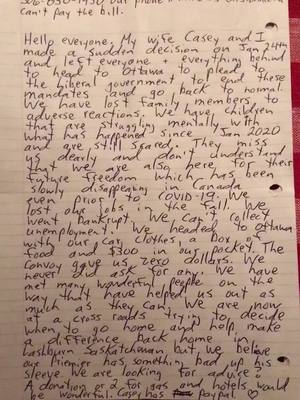 can't pay the bill.
Hello everyone, My wife Casey and I
made a sudden decision on Jan 24th
and left everyone + everything behind
to head to Ottawa to plead to
the liberal government to! end these
mandates and go back to normal.
We have lost family members to
adverse reactions. We have children
that are struggling mentally with
what has happened since Jan 2020
and are still scared. They miss
us dearly and don't understand
that we are also here for their
future freedom which has been
slowly disappearing in Canada
even prior to COVID-19. We
lost our jobs in the fall. We
went bankrupt. We can't collect
unemployment. We headed to Ottawa
with our car, clothes, a box of
food and $300 in our pocket. The
convoy gave us zero dollars. We
never did ask for any. We have
met many wonderful people on the
way that have helped us out as
much as they can. We are now
at a cross roads trying to decide
when to go home and help make
a difference back home in
Lashburn Saskatchewan but, we believe
our Premier has something bad up his
sleeve. We are looking for advice!
A donation or 2 for gas and hotels would
be wonderful. Casey has paypal. ♡